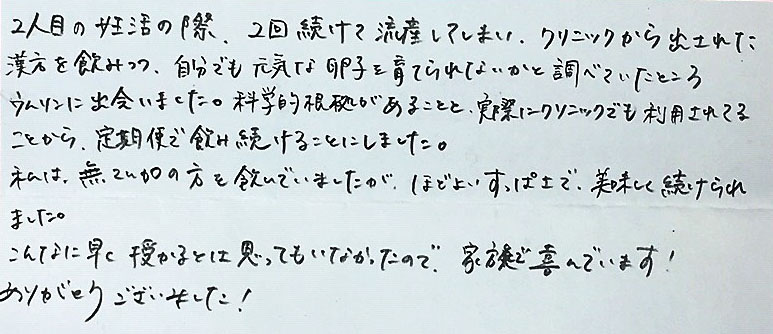 2人目の妊活の際、2回続けて流産してしまい、クリニックから出された
漢方を飲みつつ、自分でも元気な卵子を育てられないかと調べていたところ
ウムリンに出会いました。科学的根拠があることと、実際にクリニックでも利用されてる
ことから、定期便で飲み続けることにしました。
私は、無添加の方を飲んでいましたが、ほどよいすっぱ土で、美味しく続けられ
ました。
こんなに早く授かるとは思ってもいなかったので、家族で喜んでいます！
ありがとうございました！